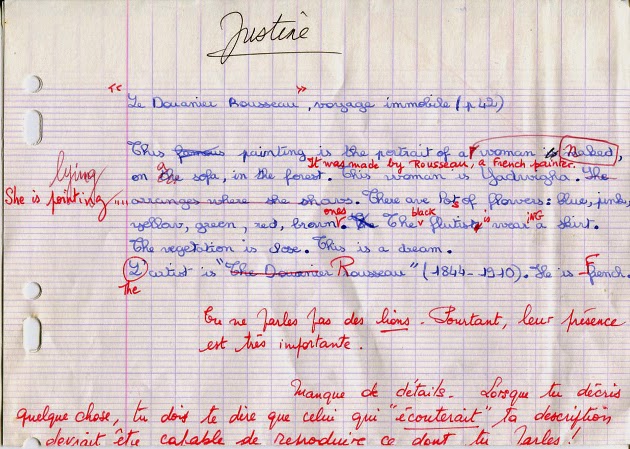 Justine
" "
Le Douanier Rousseau, voyage immobile (p 42)
This famous painting is the portrait of a woman is naked,
It was made by Rousseau, a French painter.
lying
on the sofa, in the forest. This woman is Yadwigha. The
She is pointing
arranges where she shows. There are lots of flowers: blue, pink,
ones black is ING
yellow, green, red, brown. The flutist wear a skirt.
The vegetation is close. This is a dream.
L'artist is "The Douanier Rousseau" (1844-1910). He is French.
The
Tu ne parles pas des lions. Pourtant, leur présence
est très importante.
Manque de détails. Lorsque tu décris
quelque chose, tu dois te dire que celui qui "écouterait" ta description
devrait être capable de reproduire ce dont tu parles!